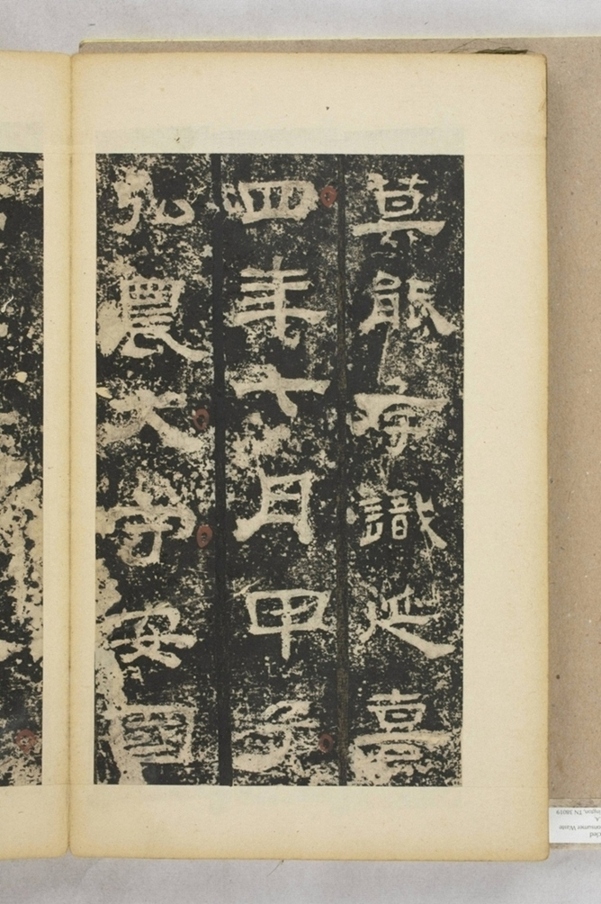 莫能存識延熹
四年七月甲子
弘農大守安國